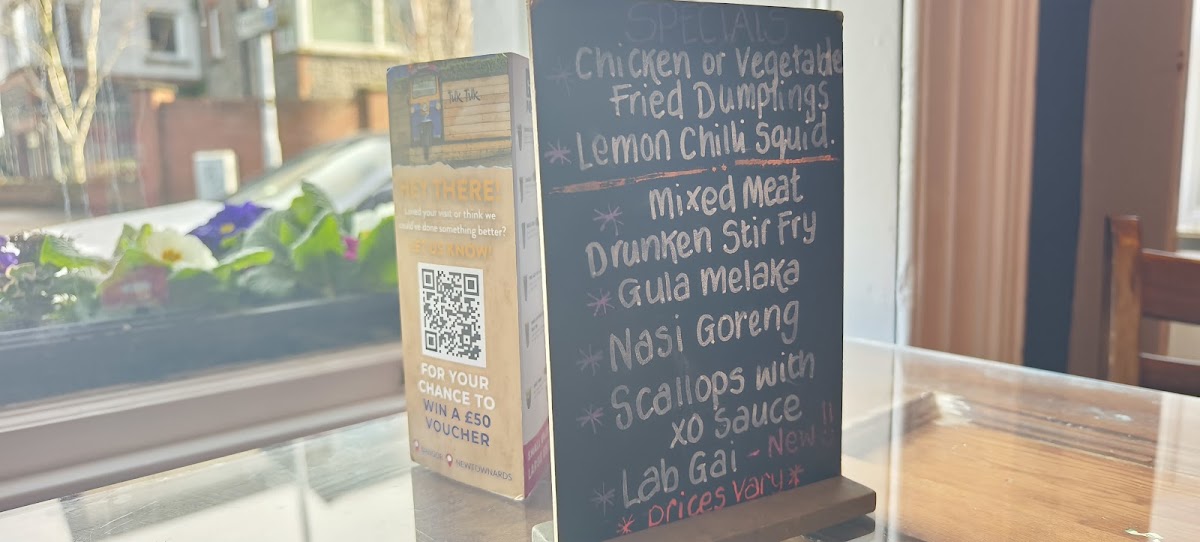 Tuk Tuk
HEY THERE!
Loved your visit or think we
could've done something better?
LET US KNOW!
FOR YOUR
CHANCE TO
WIN A £50
VOUCHER
BANGOR NEWTOWNARDS
SPECIALS
* Chicken or Vegetable
Fried Dumplings
* Lemon Chilli Squid.
* Mixed Meat
Drunken Stir Fry
* Gula Melaka
* Nasi Goreng
* Scallops with
XO Sauce
* Lab Gai - New!!
* Prices Vary *